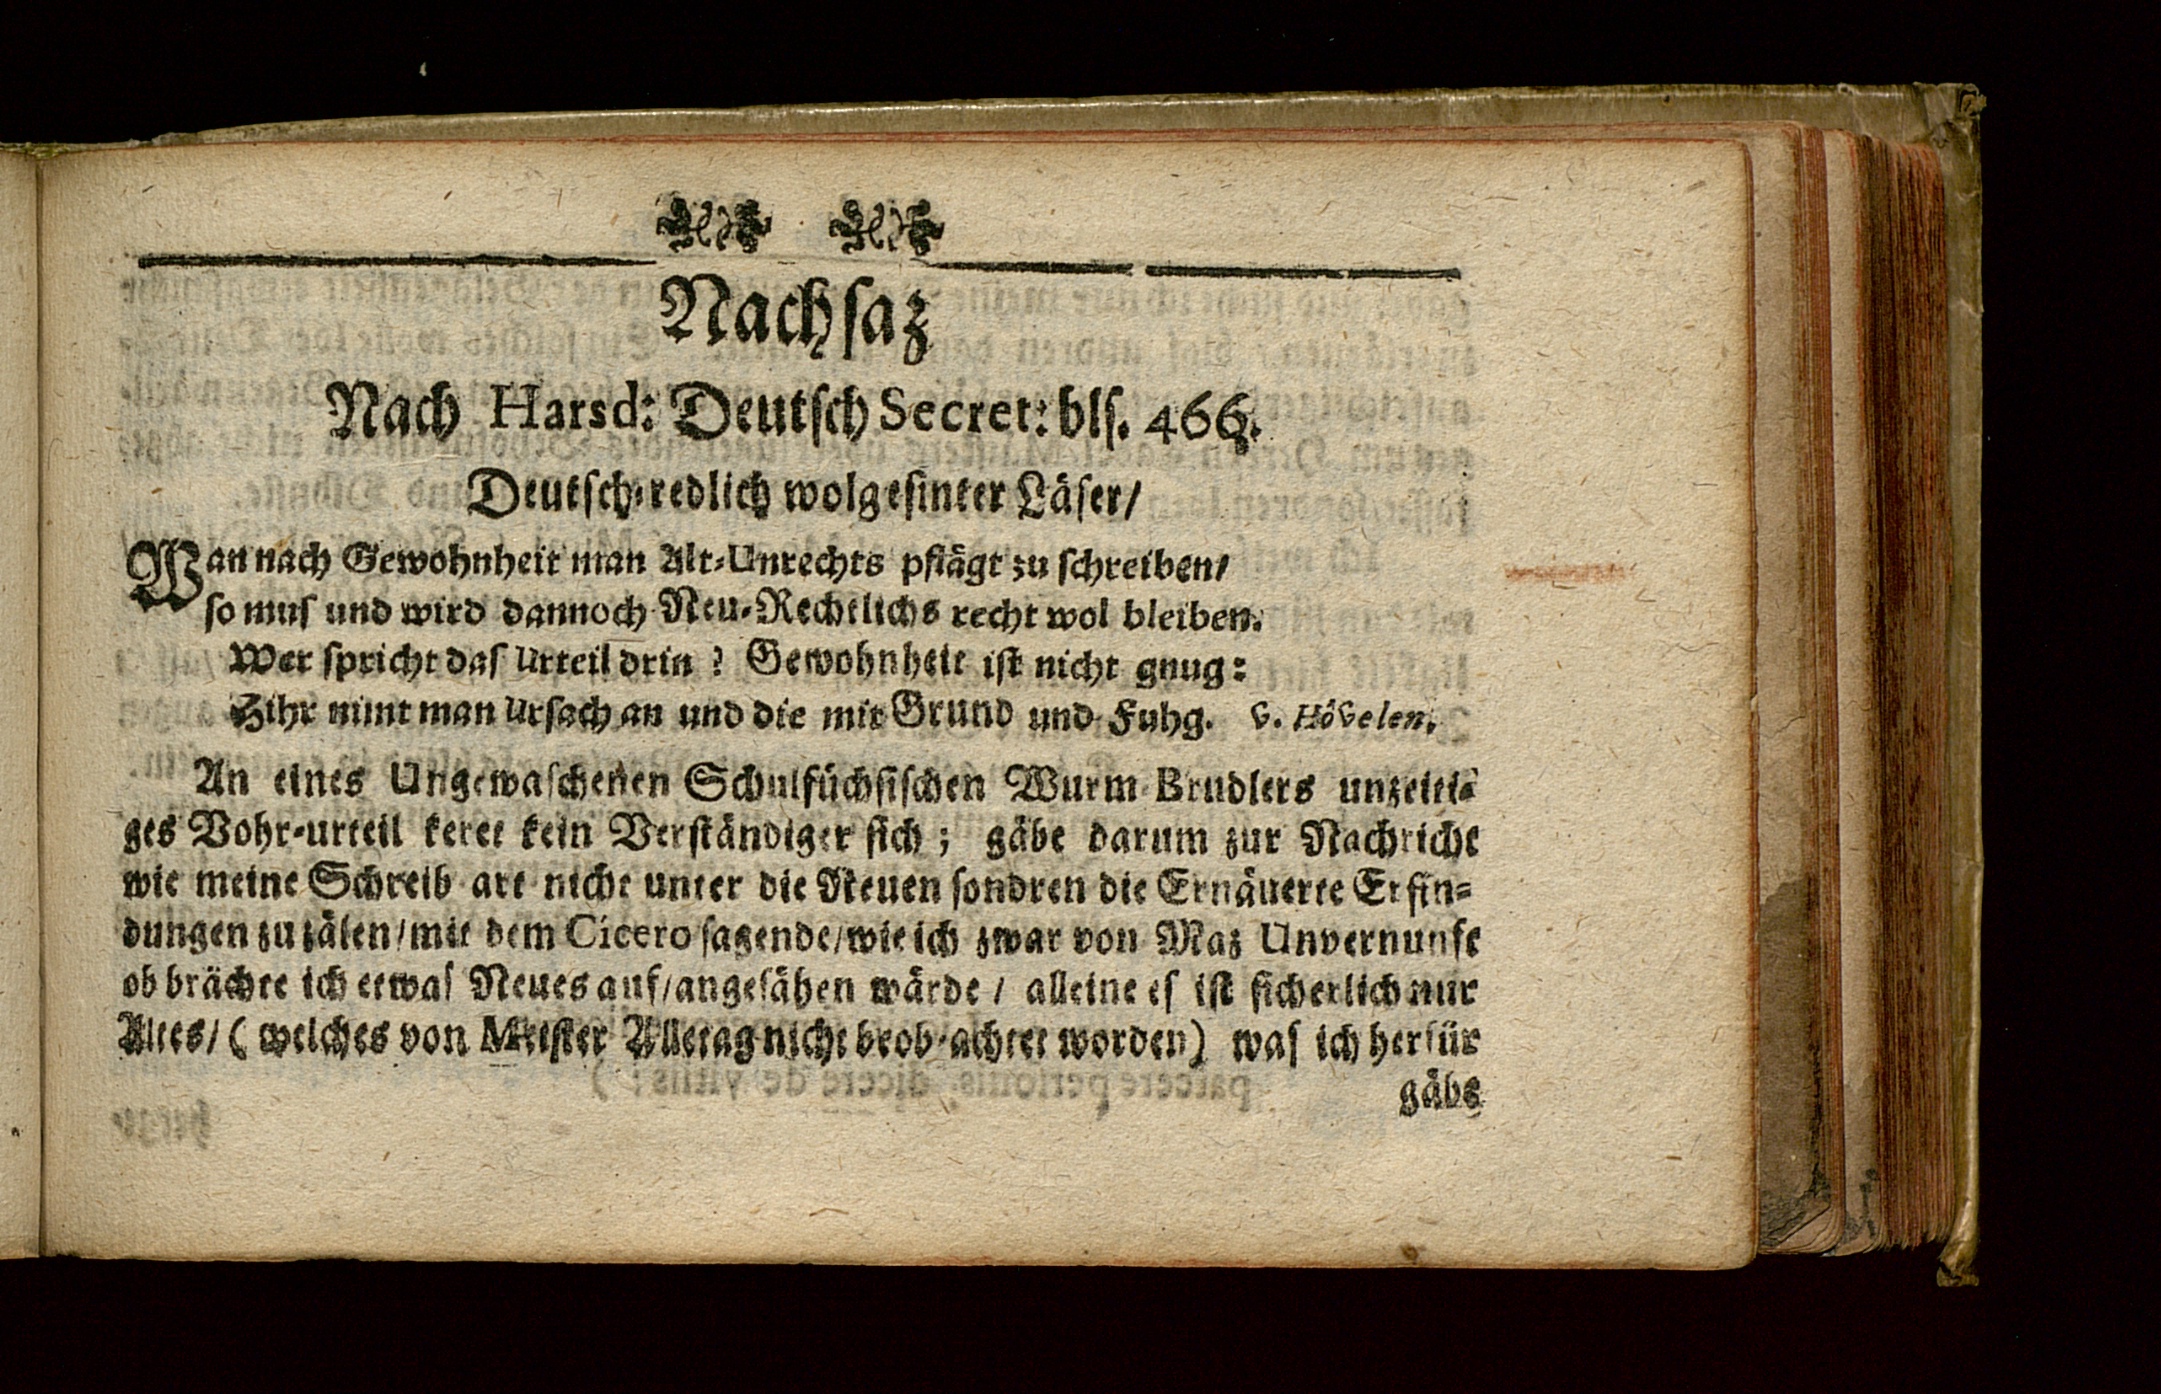 Nachsaz
Nach Harsd: Deutsch Secret: blſ. 466.
Deutsch-redlich wolgesinter Läser/
Wan nach Gewohnheit man Alt-Unrechts pflägt zu schreiben/
so muſ und wird dannoch Neu-Rechtlichs recht wol bleiben.
Wer spricht daſ Urteil drin? Gewohnheit ist nicht gnug:
Hihr nimt man Ursach an und die mit Grund und Fuhg. v. Hövelen.
An eines Ungewaschenen Schulfüchsischen Wurm Brudlers unzeiti-
ges Vohr-urteil keret kein Verständiger sich; gäbe darum zur Nachricht
wie meine Schreib art nicht unter die Neuen sondren die Ernäuerte Erfin-
dungen zu zälen/mit dem Cicero sagende/wie ich zwar von Maz Unvernunft
ob brächte ich etwaſ Neues auf/angesähen wärde/ alleine eſ ist sicherlich nur
Altes/( welches von Meister Alletag nicht beob-achtet worden) waſ ich herfür
gäbe